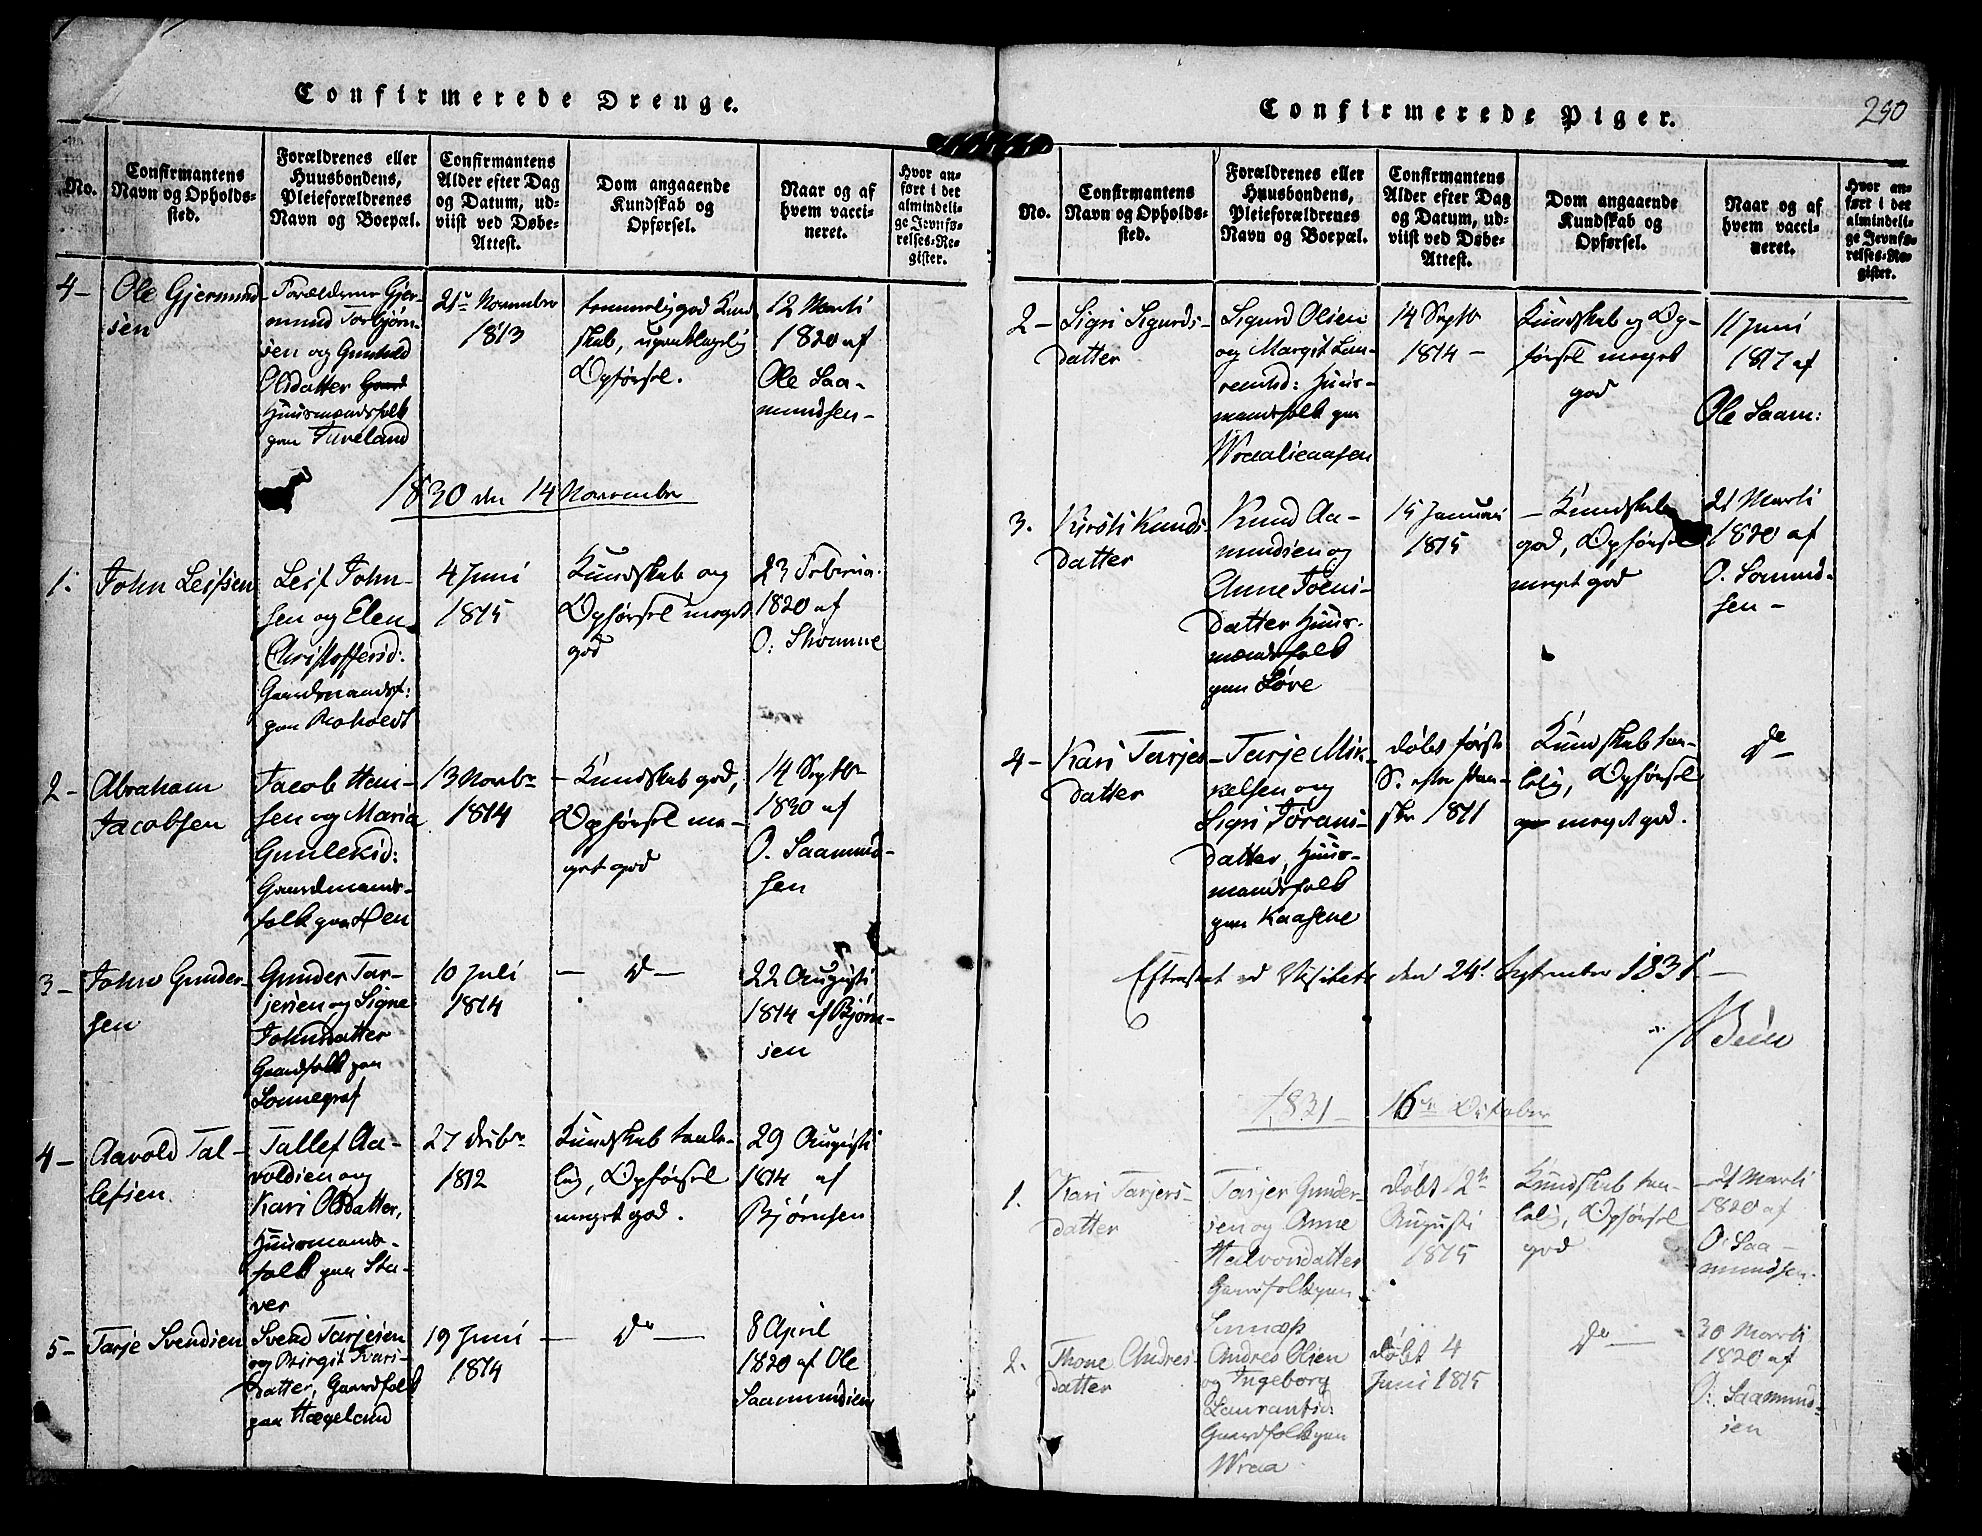 Confirmerede Drenge.
No.
Confirmantens
Navn og Opholds-
sted.
Forældrenes eller
Huusbondens,
Pleieforældrenes
Navn og Boepæl.
Confirmantens
Alder efter Dag
og Datum, ud-
viist ved Døbe-
Attest.
Dom angaaende
Kundskab og
Opførsel.
Naar og af
hvem vacci-
neret.
Hvor an-
ført i det
almindeli-
ge Jevnfø-
relses-Re-
gister.
4-
Ole Gjermund-
sen
Forældrene Gjer-
mund Torbjørn-
sen og Gunhild
Olsdatter
Huusmandsfolk
paa Tveeland
21de November
1813
temmelig god Kund
skab, upaaklagelig
Opførsel.
12 Marti
1820 af
Ole Saa-
mundsen-
1830 den 14 November
1.
John Leifsen
Leif John-
sen og Elen
Christoffersd:
Gaardmandsf:
paa Roholdt
4 Juni
1815
Kundskab og
Opførsel meget
god
23 Februa.
1820 af
O:
2-
Abraham
Jacobsen
Jacob Hen-
sen og Maria
Gunlekid:
Gaardmands-
folk paa Hen
13 Novbr
1814
- Kundskab god,
Opførsel me-
get god
14 Septbr
1830 af
O. Saamund-
sen
3-
John Gunder-
sen
Gunder Tar-
jersen og Signe
Johnsdatter
Gaardfolk paa
Sonnegraf
10 Juli
1814
- do -
22 Augusti
1814 af Bjørn-
sen
4-
Aavold Tal-
lefsen
Tallef Aa-
voldsen og
Kari Olsdatter,
Huusmands-
folk paa Sta-
ver
27 Decbr
1812
Kundskab taale-
lig, Opførsel
meget god.
29 Augusti
1814 af
Bjørnsen
5-
Tarje Svendsen
Svend Tarjesen
og Birgit
datter, Gaardfolk
paa Hægeland
19 Juni
1814
- do -
8 April
1820 af Ole
Saamundsen
Confirmerede Piger.
290
No.
Confirmantens
Navn og Opholds-
sted.
Forældrenes eller
Huusbondens,
Pleieforældrenes
Navn og Boepæl.
Confirmantens
Alder efter Dag
og Datum, ud-
viist ved Døbe-
Attest.
Dom angaaende
Kundskab og
Opførsel.
Naar og af
hvem vacci-
neret.
Hvor an-
ført i det
almindeli-
ge Jevnfø-
relses-Re-
gister.
2-
Sigri Sigurds-
datter
Sigurd Olsen
og Margit Lau-
rentsd: Huus-
mandsfolk paa
Wraalieaasen
14 Septbr
1814-
Kundskab og Op-
førsel meget
god
11 Juni
1817 af
Ole Saam:
3.
Kirsti Knuds-
datter
Knud Aa-
mundsen og
Anne Joens-
datter Huus-
mandsfolk
paa Løve
15 Januari
1815
- Kundskab
god, Opførsel
meget god
21 Marti
1820 af
O. Somund-
sen-
4-
Kari Tarjes-
datter
Tarje Mik-
kelsen og
Sigri Jørans-
datter, Huus-
mandsfolk
paa Kaasene
døbt første
S. efter Paa-
ske 1811
Kundskab taa-
lelig, Opførsel
meget god.
do
Efterseet ved Visitats den 24de September 1831-
1831- 16de October
1.
Kari Tarjers-
datter
Tarjer Gunder-
sen og Anne
Halvorsdatter
Gaardfolk paa
døbt 12te
Augusti
1815
Kundskab taa-
lelig, Opførsel
god
21 Marti
1820 af
O. Saa-
mundsen.
2.
Thone Andres-
datter
Andres Olsen
og Ingeborg
Laurantsd:
Gaardfolk paa
Wraa
døbt 4
Juni 1815
do -
30 Marti
1820 af
O: Saamund-
sen